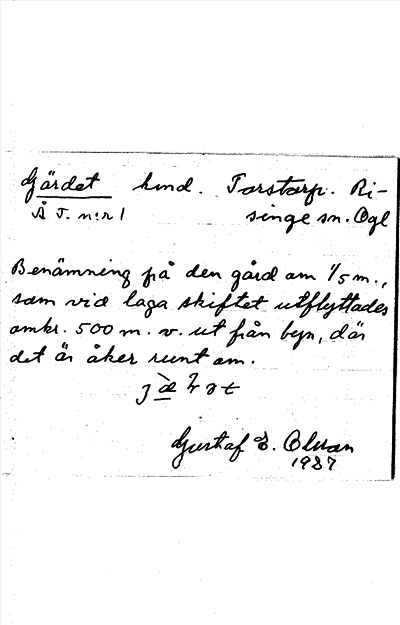 Gärdet hmd. Torstorp. Ri-
Å T. n:r 1 singe sn. Ögl
Benämning på den gård om 1/5 m.,
som vid laga skiftet utflyttades
omkr. 500 m. v. ut från byn, där
det är åker runt om.
Gustaf E. Olsson
1937